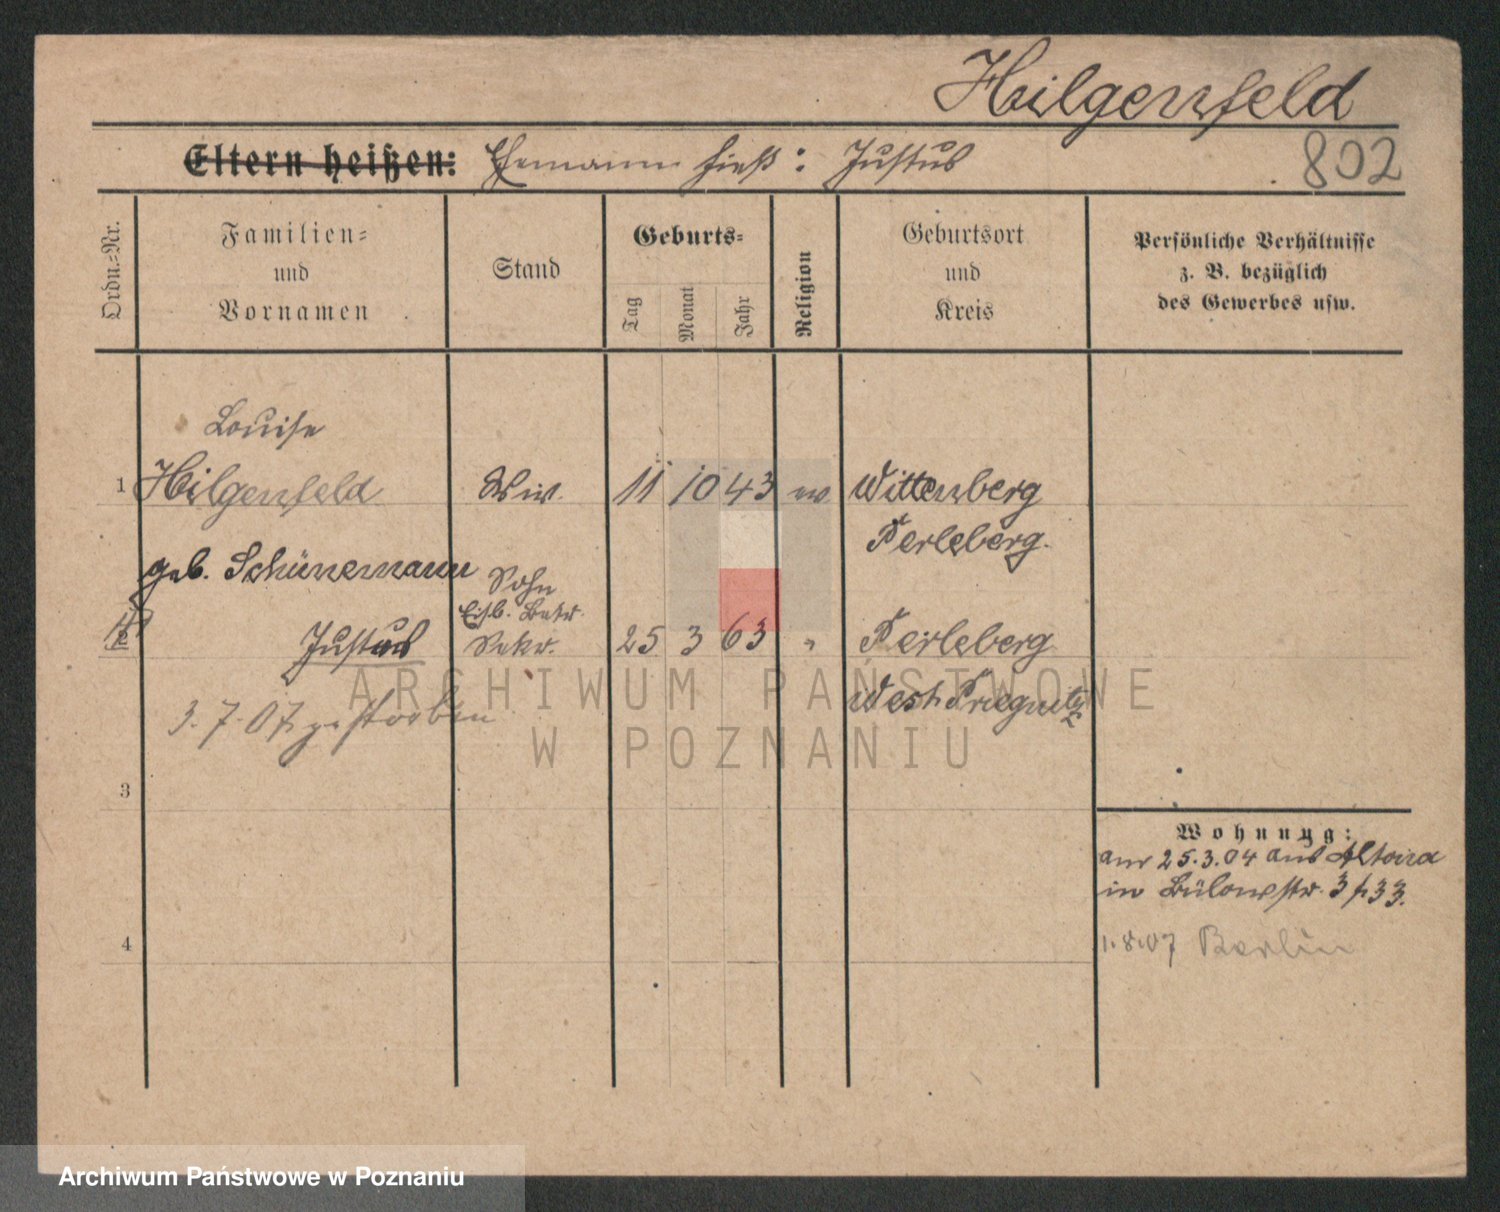 Hilgenfeld
Eltern heißen: Ehemann hieß: Justus
802
Ordn.-Nr.
Familien-
und
Vornamen
Stand
Geburts-
Tag
Monat
Jahr
Religion
Geburtsort
und
Kreis
Persönliche Verhältnisse
z. B. bezüglich
des Gewerbes usw.
Louise
1 Hilgenfeld Wiw. 11 10 43 ev Wittenberg
Perleberg.
geb. Schünemann
Sohn
Eisb. Betr.
2 Justus Sekr. 25 3 63 " Perleberg
West Priegnitz
3.7.07 gestorben
3
4
Wohnung:
am 25.3.04 aus Altona
in Bülowstr. 3 33.
1.8.07 Berlin
ARCHIWUM PAŃSTWOWE
W POZNANIU
Archiwum Państwowe w Poznaniu